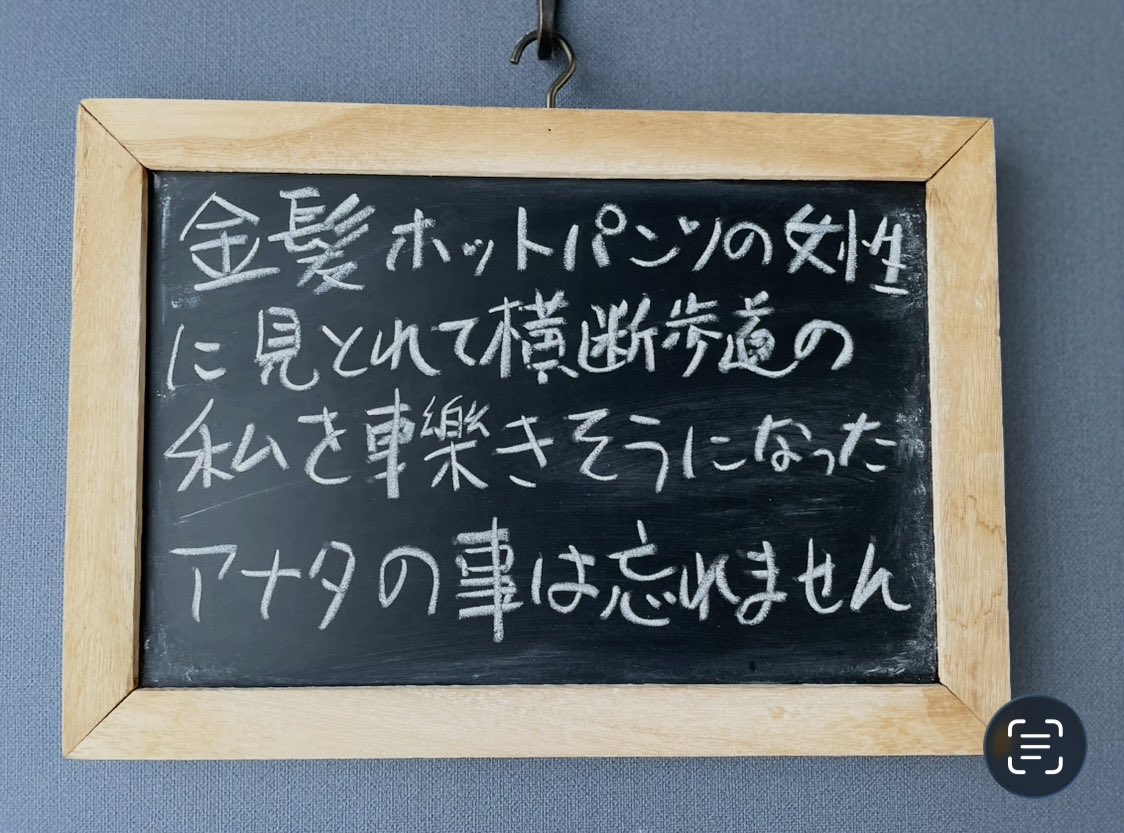 金髪ホットパンツの女性
に見とれて横断歩道の
私を轢きそうになった
アナタの事は忘れません